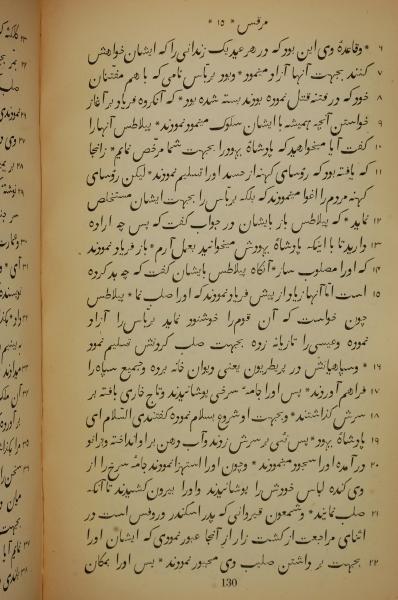 مرقس * ۱۵ *
۶ * وقاعدهٔ وی این بود که در هر عید یک زندانی را که ایشان خواهش
۷ کنند بجهت آنها آزاد مینمود * وبود برباس نامی که با هم مفتنان
۸ خود که در فتنه قتل نموده بودند بسته شده بود * که آنگروه فریاد بر آغاز
۹ خواستن آنچه همیشه با ایشان سلوک مینمود نمودند * پیلاطس آنها را
۱۰ گفت آیا میخواهید که پادشاه یهود را بجهت شما مرخص نمایم * زانجا
۱۱ که یافته بود که رؤسای کهنه از حسد او را تسلیم نمودند * لیکن رؤسای
کهنه مردم را اغوا مینمودند که بلکه برباس را بجهت ایشان مستخلص
۱۲ نماید * که پیلاطس باز بایشان در جواب گفت که پس چه اراده
۱۳ دارید تا با اینکه پادشاه یهودش میخوانید بعمل آرم * باز فریاد نمودند
۱۴ که او را مصلوب ساز * آنگاه پیلاطس بایشان گفت که چه بد کرده
۱۵ است امّا آنها زیاد از پیش فریاد نمودند که او را صلب نما * پیلاطس
چون خواست که آن قوم را خوشنود نماید برباس را آزاد
نموده وعیسی را تازیانه زده بجهت صلب کردنش تسلیم نمود
۱۶ * وسپاهیانش در پریطریون یعنی دیوان خانه برده وجمیع سپاه را
۱۷ فراهم آوردند * پس او را جامهٔ سرخی پوشانیدند وتاج خاری بافته بر
۱۸ سرش گذاشتند * وبجهت او شروع بسلام نموده گفتندی السلام ای
۱۹ پادشاه یهود * پس نئی بر سرش زدند وآب دهن بر او انداخته وزانو
۲۰ در آمده او را سجود مینمودند * وچون او را استهزا نمودند جامهٔ سرخ را از
وی کنده لباس خودش را پوشانیدند واو را بیرون کشیدند تا آنکه
۲۱ صلب نمایند * وشمعون قیروانی که پدر اسکندر وروفس است در
اثنای مراجعت از کشت زار از آنجا عبور نمودی که ایشان او را
۲۲ بجهت بر داشتن صلیب وی مجبور نمودند * پس او را بمکان
130